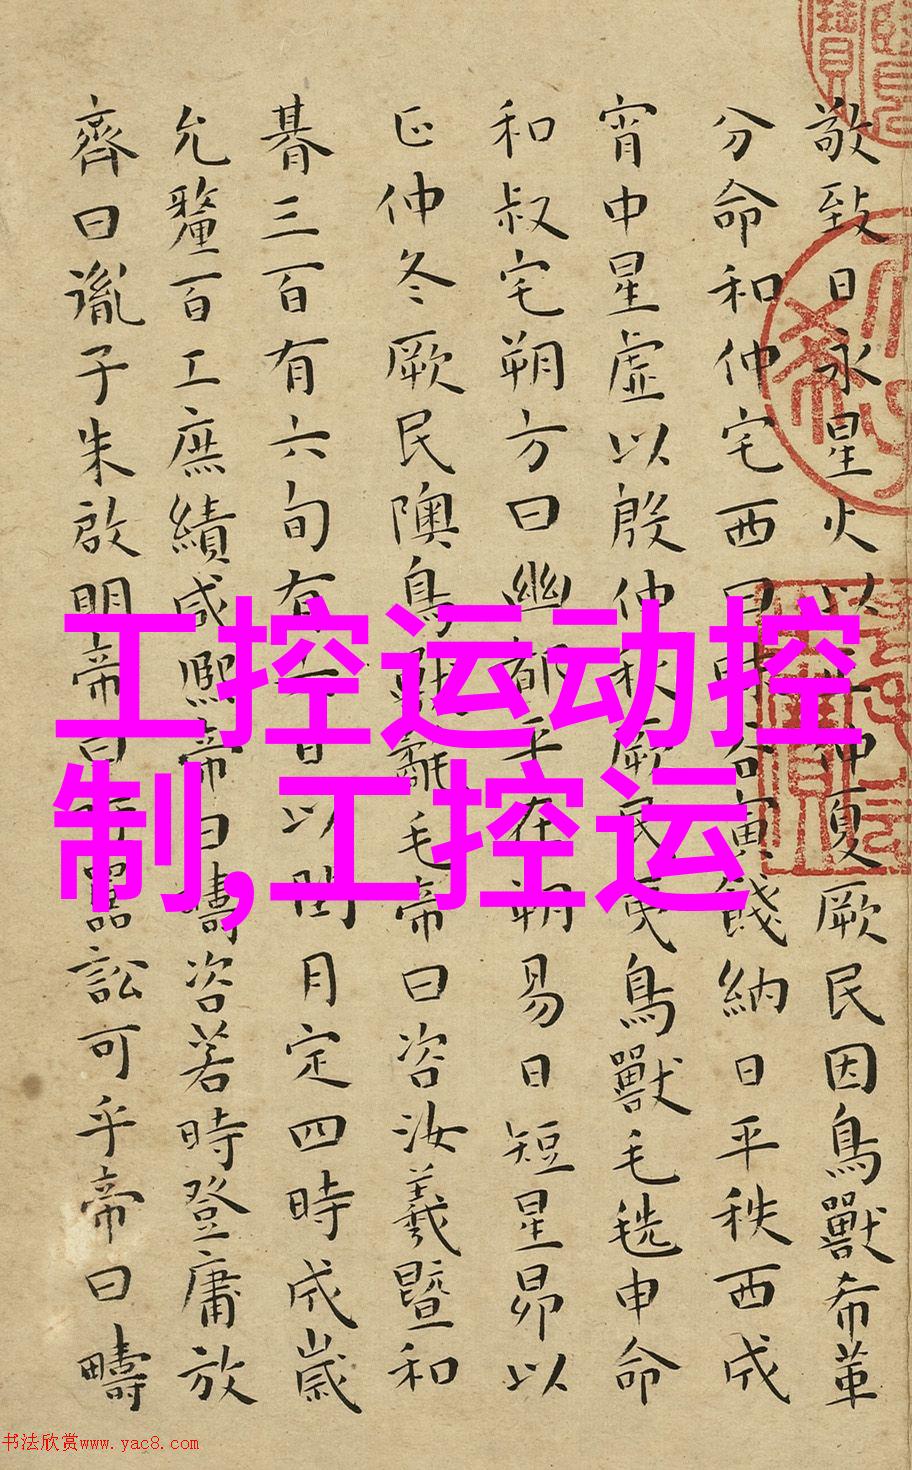 敬致日永星火以仲夏厥民因鳥獸希革
分命和仲宅西曰昧谷寅餞納日平秩西成
宵中星虛以殷仲秋厥民夷鳥獸毛毨申命
和叔宅朔方曰幽都平在朔易日短星昴以
正仲冬厥民隩鳥獸氄毛帝曰咨汝羲暨和
朞三百有六旬有日以閏月定四時成歲
允釐百工庶績咸熙帝曰疇咨若時登庸放
齊曰胤子朱啟明帝曰嚚訟可乎帝曰疇
工控运动控
制,工控运
书法欣赏www.yac8.com